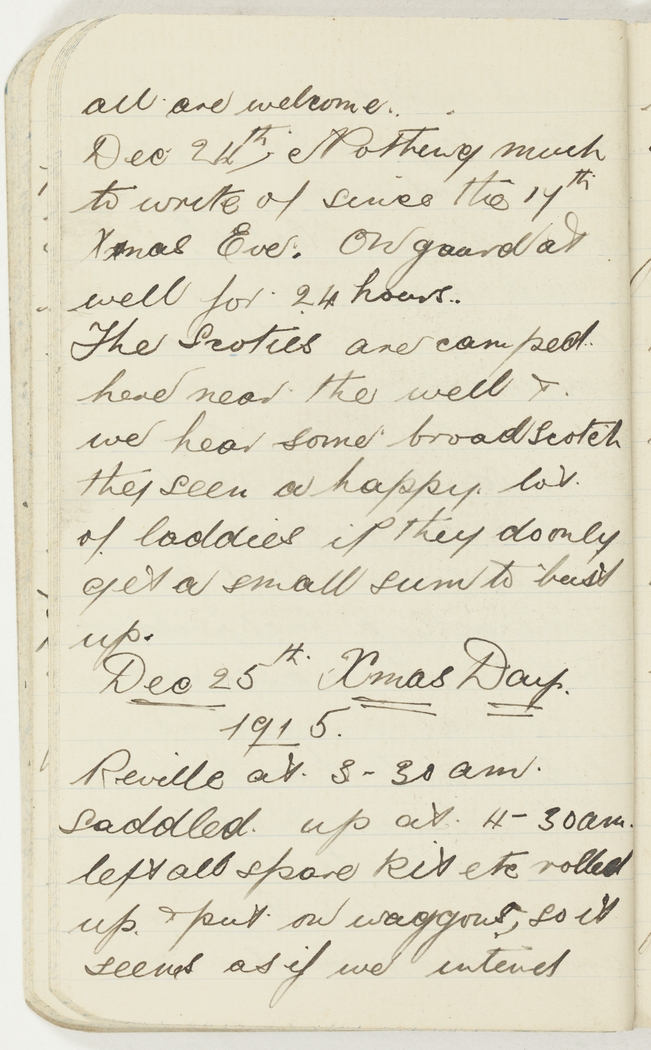 all are welcome.
Dec 24th, Nothing much
to write of since the 17th
Xmas Eve. On gaurd at
well for 24 hours.
The Scoties are camped
here near the well &
we hear some broad Scotch
they seen a happy lot
of laddies if they do only
get a small sum to bust
up.
Dec 25th. Xmas Day.
1915.
Reville at 3-30 am.
saddled up at 4-30 am.
left all spare kit etc rolled
up & put on waggons, so it
seems as if we intend